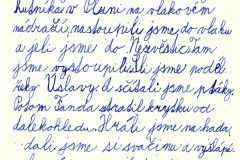 Rušníka v Plzni na vlakovém
nádraží, nastoupili jsme do vlaku
a jeli jsme do Nezvěstic. Tam
jsme vystoupili. Šli jsme podél
řeky Úslavy a sčítali jsme ptáky.
Potom Fanda ztratil krytku od
dalekohledu. Hráli jsme na hada,
dali jsme si svačinu a vyšlápli